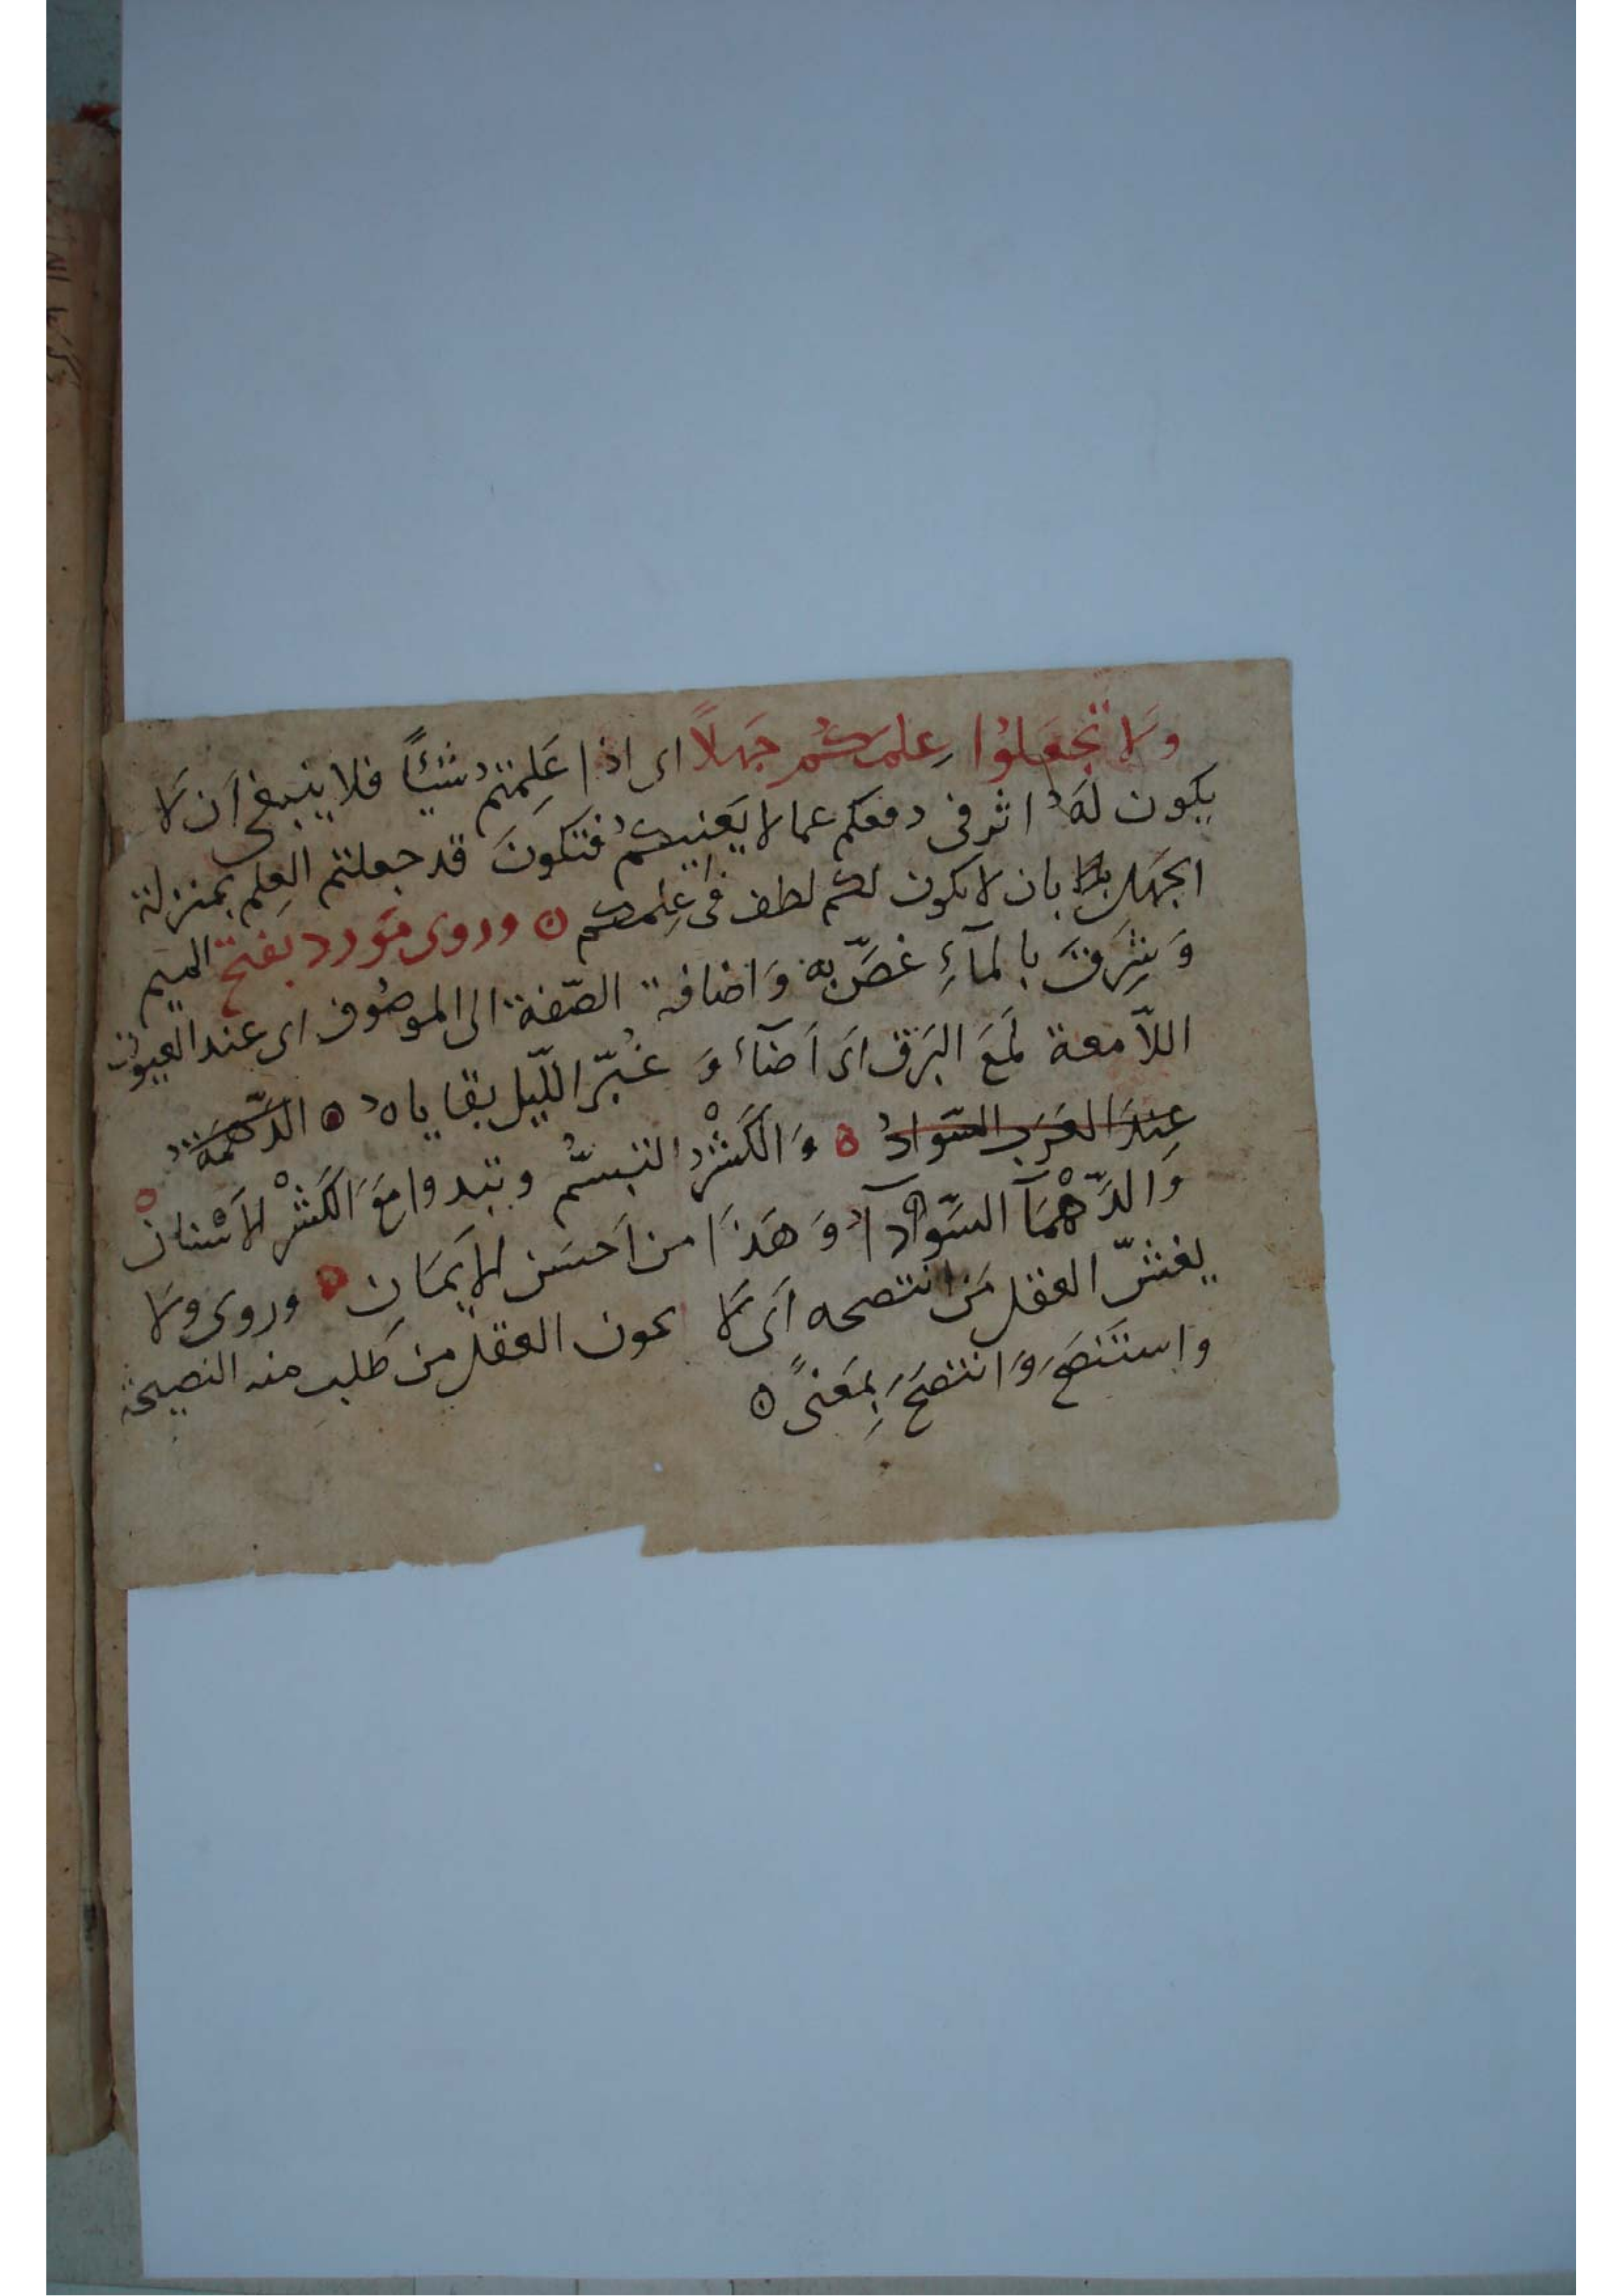 وَلَا تَجْعَلُوا عِلمَكُم جَهلًا اى اذا عَلِمتمُ شَيْئًا فلا ينبغى اَن لَا
يَكون لَهُ اثر فى دفعكم عما لا يَعْنِيكُم فتكونَ قد جعلتم العِلم بمنزلة
الجَهل بان لا يكون لكم لطف فى عِلمكم ٥ وروى مَورد بفتح الميم
وَشَرِقَ بالمآءِ غصَّ به وَاضافة الصّفة الى الموصُوف اى عند العيُون
اللّامعة لَمَعَ البَرَق اَى اَضآءَ وَ غُبّر اللّيل بقاياهُ ٥ الدّهمَةُ
عِندَ العَرَب السّوَادُ ٥ وَالكَشْرُ التبسُّم وتبدوا مَعَ الكَشْر الأَسْنانْ ٥
وَالدّهْمَآ السَّوادآءُ وَ هَذَا من اَحسَن الإيمَانِ ٥ وروى ولا
يغشّ العقل مَن انتصحه اَى لَا يخون العقل من طَلب منه النصيحة
واستَنصَحَ وَانتصَحَ بمَعنىً ٥